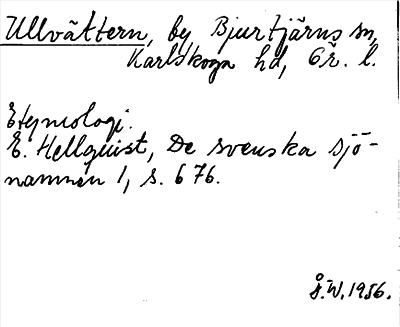 Ullvättern, by Bjurtjärns sn,
Karlskoga hd, Ör. l.
Etymologi.
E. Hellquist, De svenska sjö-
namnen 1, s. 676.
Å.W. 1956.